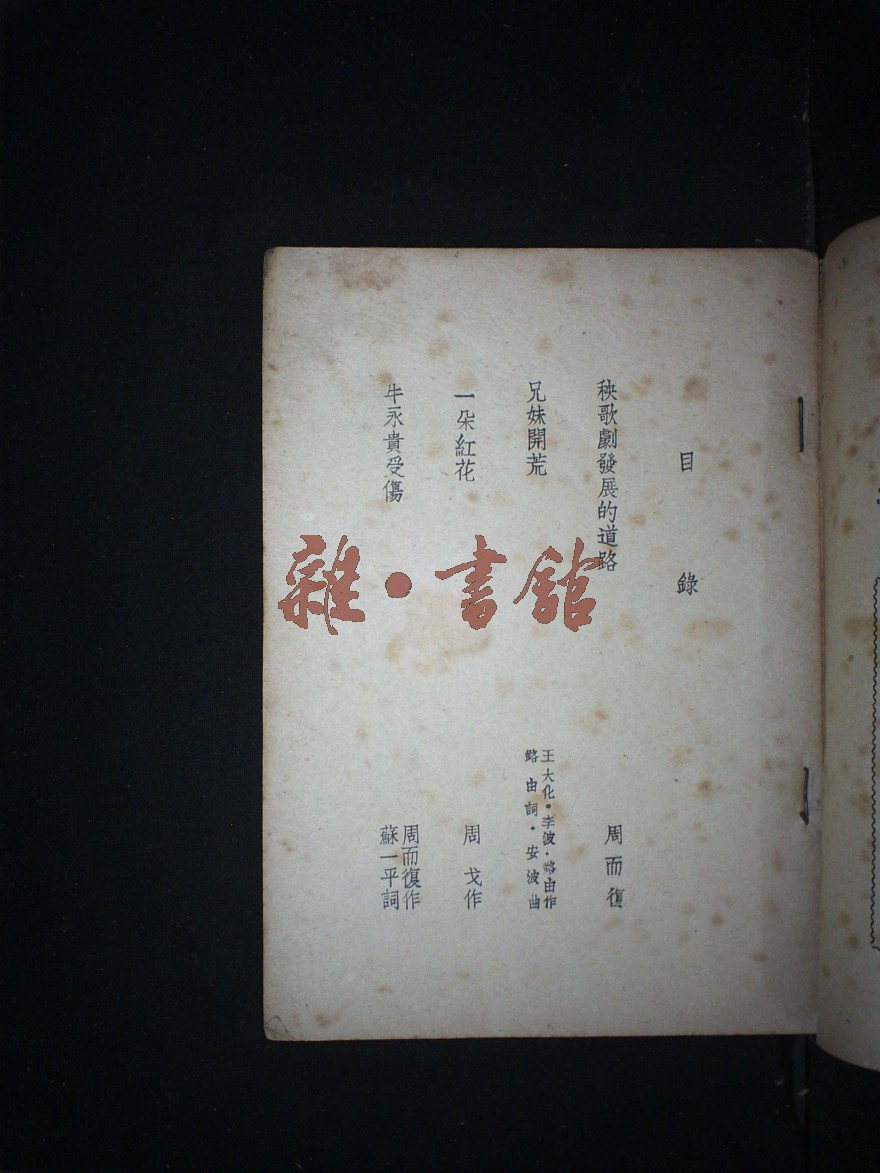 目錄
秧歌劇發展的道路 周而復
兄妹開荒 王大化·李波·路由作
路由詞·安波曲
一朵紅花 周戈作
牛永貴受傷 周而復作
蘇一平詞
雜·書館